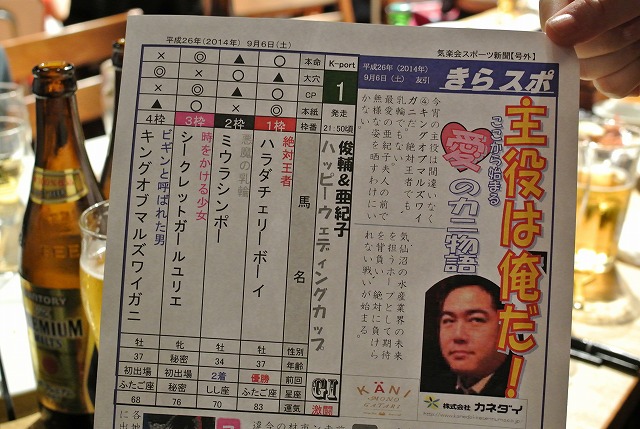 平成26年(2014年) 9月6日(土)
気楽会スポーツ新聞【号外】
平成26年(2014年)
9月6日(土) 友引
きらスポ
主役は俺だ!
ここから始まる
愛のカニ物語
今宵の主役は間違いなく
④キングオブマルズワイ
ガニだ。絶対王者でも、
乳輪でもない。
最愛の亜紀子夫人の前で
無様な姿を晒すわけにい
かない。
気仙沼の水産業界の未来
を担うホープとして期待
を背負い、絶対に負けら
れない戦いが始まる。
KANI
MONO
GATARI
株式会社 カネダイ
K-port
1
発走
21:50頃
俊輔&亜紀子
ハッピーウェディングカップ
GI
激闘
本命
大穴
CP
本紙
枠番
馬名
性別
年齢
前回
星座
運気
○ ◎ ○ ◎
1枠
絶対王者
ハラダチェリーボーイ
牡
37
優勝
ふたご座
83
▲ ○ ▲ ▲
2枠
悪魔の乳輪
ミウラシンポー
牡
34
2着
しし座
70
◎ × ◎ ○
3枠
時をかける少女
シークレットガールユリエ
牝
秘密
初出場
秘密
76
× ◎ × ▲
4枠
ビギンと呼ばれた男
キングオブマルズワイガニ
牡
37
初出場
ふたご座
68
SUNTORY
PREMIUM